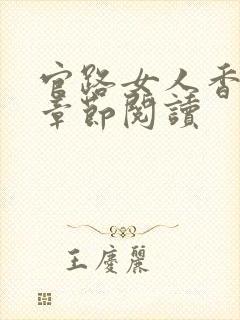 官路女人香
章節閱讀
王慶麗